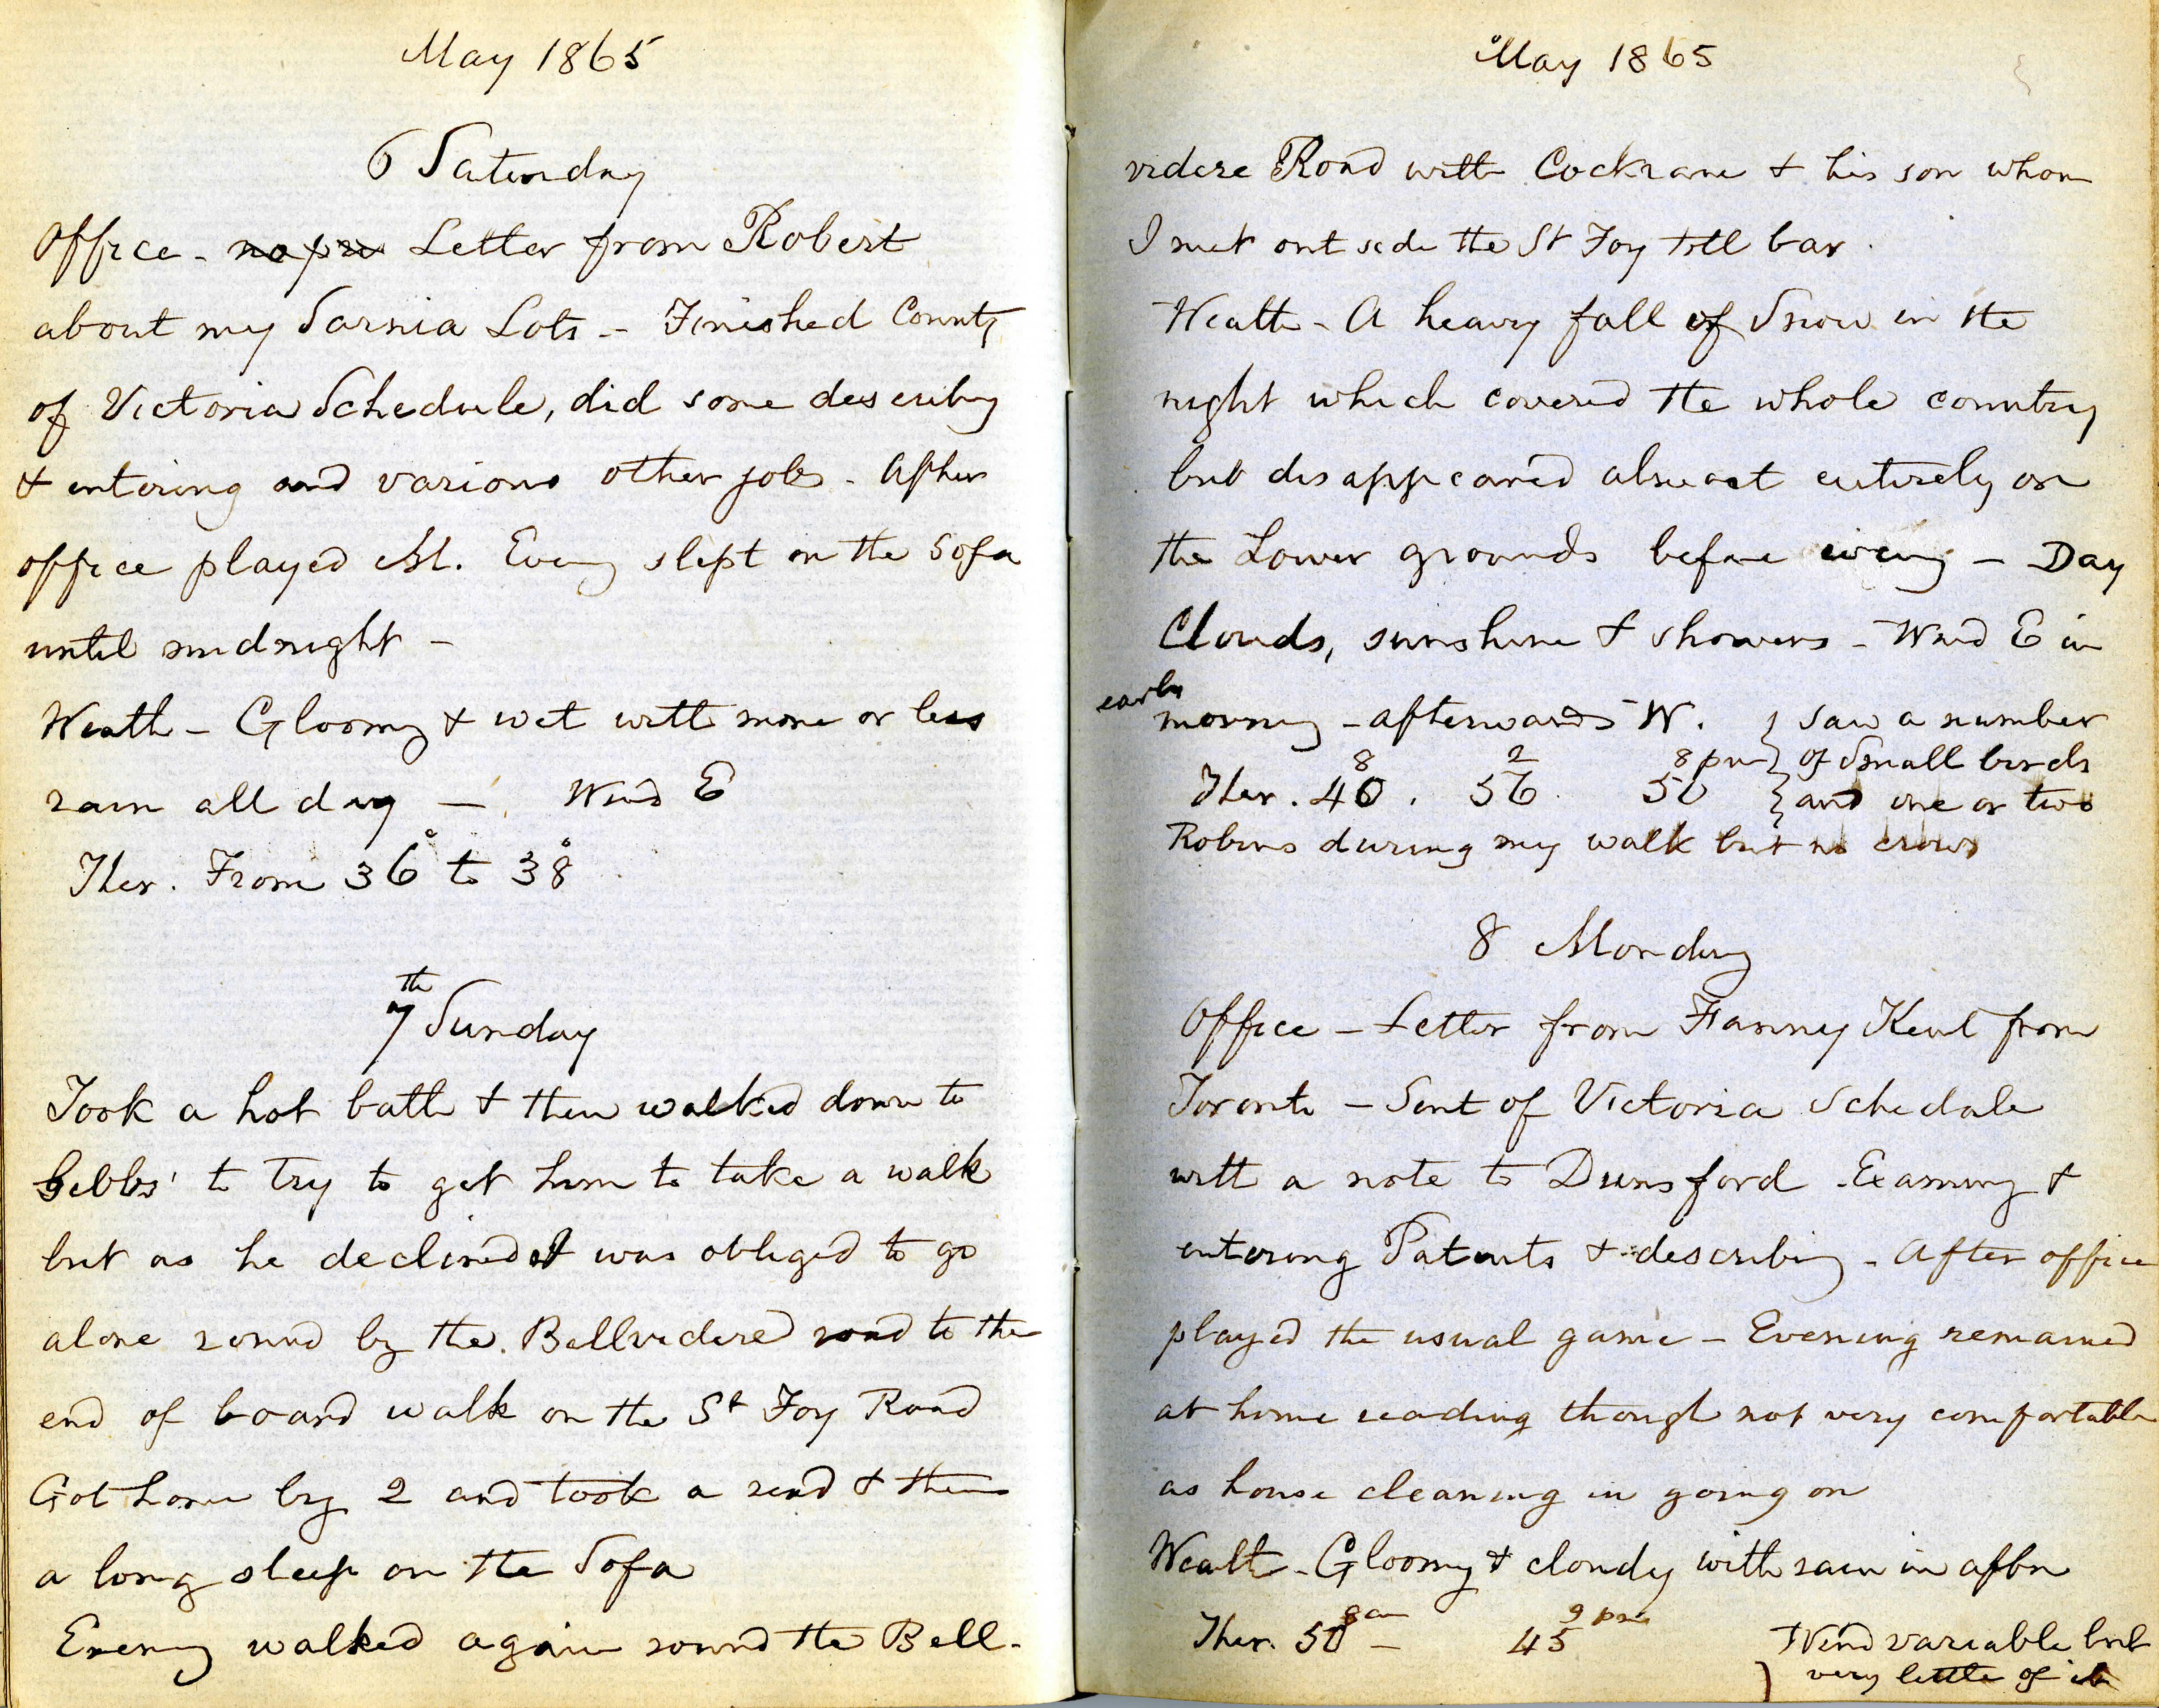 May 1865
6 Saturday
Office - Letter from Robert
about my Sarnia Lots - Finished County
of Victoria Schedule, did some describing
& entering and various other jobs - After
office played M. Eveng slept on the Sofa
until midnight -
Weath - Gloomy & wet with more or less
rain all day - Wind E
Ther. From 36° to 38°
7th Sunday
Took a hot bath & then walked down to
Gibbs' to try to get him to take a walk
but as he declined I was obliged to go
alone round by the Bellvidere road to the
end of board walk on the St Foy Road
Got home by 2 and took a read & then
a long sleep on the Sofa
Eveng walked again round the Bell-
May 1865
videre Road with Cockrane & his son whom
I met outside the St Foy toll bar.
Weath - A heavy fall of Snow in the
night which covered the whole country
but disappeared almost entirely on
the Lower grounds before eveng - Day
Clouds, sunshine & showers - Wind E in
early
morning - afterwards W. } saw a number
8 2 8 pm } of Small birds
Ther. 40. 56. 50 } and one or two
Robins during my walk but no crows
8 Monday
Office - Letter from Fanny Kent from
Toronto - Sent of Victoria Schedule
with a note to Dunsford - Examing &
entering Patents & describing - After office
played the usual game - Evening remained
at home reading though not very comfortable
as house cleaning in going on
Weath - Gloomy & cloudy with rain in aftn
8 am 9 pm
Ther. 50 - 45 Wind variable but
very little of it